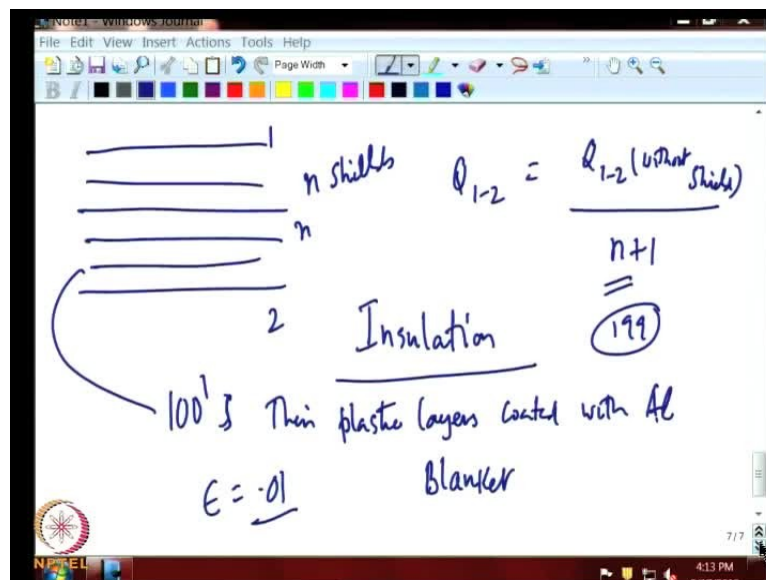 Note1 - Windows Journal
File Edit View Insert Actions Tools Help
Page Width
B I
1
n shields
Q1-2 = Q1-2 (without shield)
n
n+1
2
Insulation
199
100's Thin plastic layers coated with Al
Blanket
ϵ = .01
7/7
NPTEL
4:13 PM